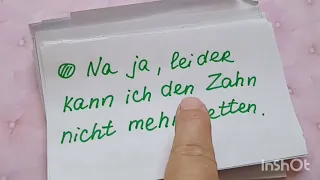 Na ja, leider
kann ich den Zahn
nicht mehr retten.
InShOt